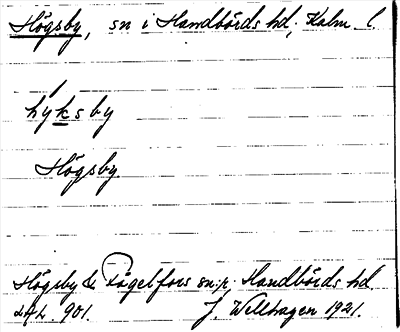 Högsby, sn i Handbörds hd, Kalm. l.
hýksby
Högsby.
Högsby & Fågelfors sn:r, Handbörds hd
ULL. 901. J. Wellhagen 1921.